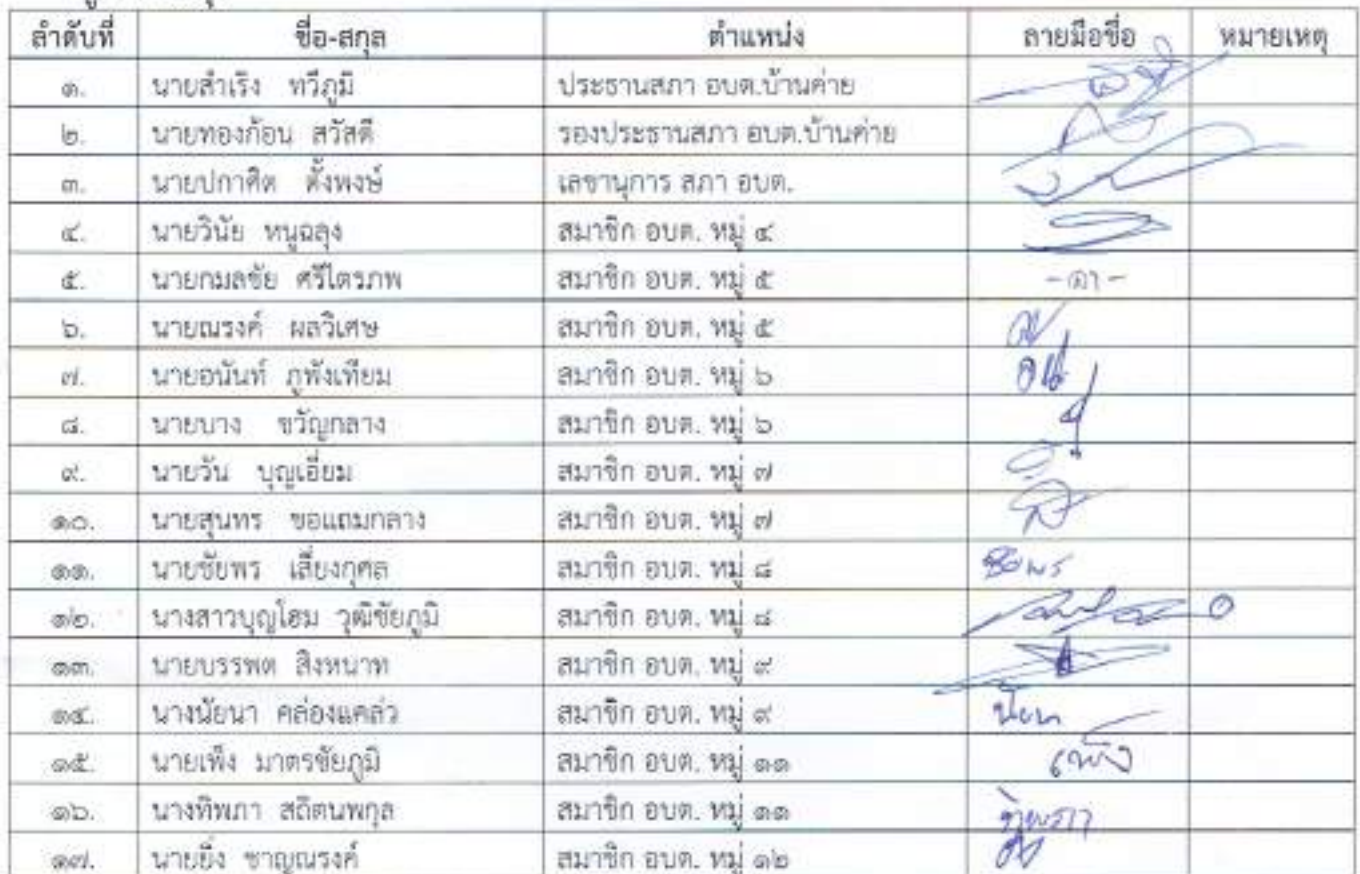 ลำดับที่ ชื่อ-สกุล ตำแหน่ง ลายมือชื่อ หมายเหตุ
๑. นายสำเริง ทวีภูมิ ประธานสภา อบต.บ้านค่าย
๒. นายทองก้อน สวัสดี รองประธานสภา อบต.บ้านค่าย
๓. นายปกาศิต ตั้งพงษ์ เลขานุการ สภา อบต.
๔. นายวินัย หนูฉลุง สมาชิก อบต. หมู่ ๔
๕. นายกมลชัย ศรีไตรภพ สมาชิก อบต. หมู่ ๕ -ลา-
๖. นายณรงค์ ผลวิเศษ สมาชิก อบต. หมู่ ๕
๗. นายอนันท์ ภูพังเทียม สมาชิก อบต. หมู่ ๖
๘. นายบาง ขวัญกลาง สมาชิก อบต. หมู่ ๖
๙. นายวัน บุญเอี่ยม สมาชิก อบต. หมู่ ๗
๑๐. นายสุนทร ขอแถมกลาง สมาชิก อบต. หมู่ ๗
๑๑. นายชัยพร เสี่ยงกุศล สมาชิก อบต. หมู่ ๘ ชัยพร
๑๒. นางสาวบุญโฮม วุฒิชัยภูมิ สมาชิก อบต. หมู่ ๘
๑๓. นายบรรพต สิงหนาท สมาชิก อบต. หมู่ ๙
๑๔. นางนัยนา คล่องแคล่ว สมาชิก อบต. หมู่ ๙
๑๕. นายเพ็ง มาตรชัยภูมิ สมาชิก อบต. หมู่ ๑๑ เพ็ง
๑๖. นางทิพภา สถิตนพกุล สมาชิก อบต. หมู่ ๑๑
๑๗. นายยิ่ง ชาญณรงค์ สมาชิก อบต. หมู่ ๑๒